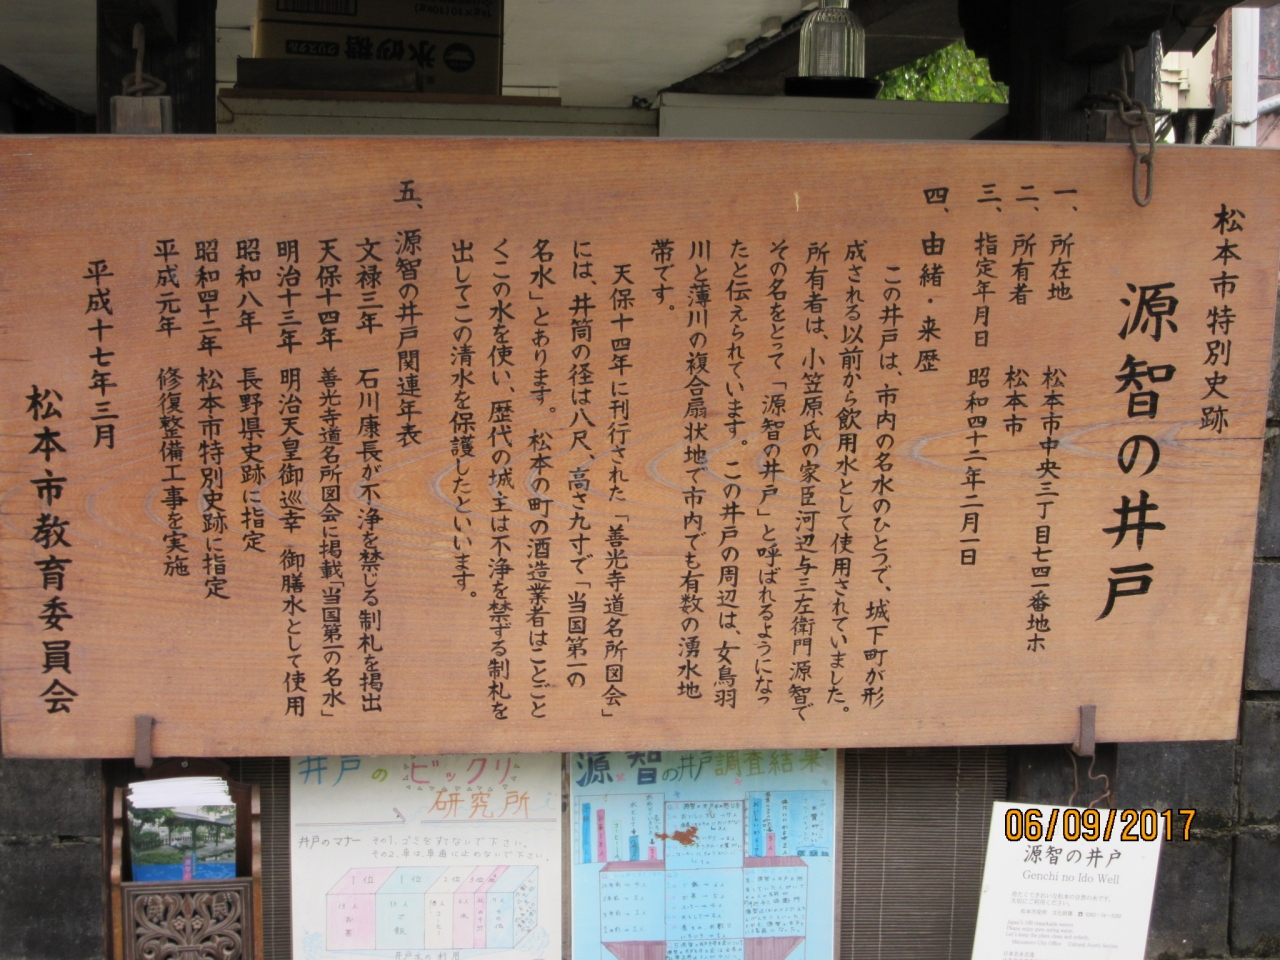 松本市特別史跡
源智の井戸
一、所在地 松本市中央三丁目七四二番地ホ
二、所有者 松本市
三、指定年月日 昭和四十二年二月一日
四、由緒・来歴
この井戸は、市内の名水のひとつで、城下町が形
成される以前から飲用水として使用されていました。
所有者は、小笠原氏の家臣河辺与三左衛門源智で
その名をとって「源智の井戸」と呼ばれるようになっ
たと伝えられています。この井戸の周辺は、女鳥羽
川と薄川の複合扇状地で市内でも有数の湧水地
帯です。
天保十四年に刊行された「善光寺道名所図会」
には、井筒の径は八尺、高さ九寸で「当国第一の
名水」とあります。松本の町の酒造業者はことごと
くこの水を使い、歴代の城主は不浄を禁ずる制札を
出してこの清水を保護したといいます。
五、源智の井戸関連年表
文禄三年 石川康長が不浄を禁じる制札を掲出
天保十四年 善光寺道名所図会に掲載「当国第一の名水」
明治十三年 明治天皇御巡幸 御膳水として使用
昭和八年 長野県史跡に指定
昭和四十二年 松本市特別史跡に指定
平成元年 修復整備工事を実施
平成十七年三月
松本市教育委員会
氷砂糖
クリスタル
井戸のビックリ
研究所
井戸のマナー その1.ゴミをすてないで下さい。
その2.車は車道にとめないで下さい。
1位
井戸水の利用
源智の井戸調査結果
源智の井戸
Genchi no Ido Well
06/09/2017